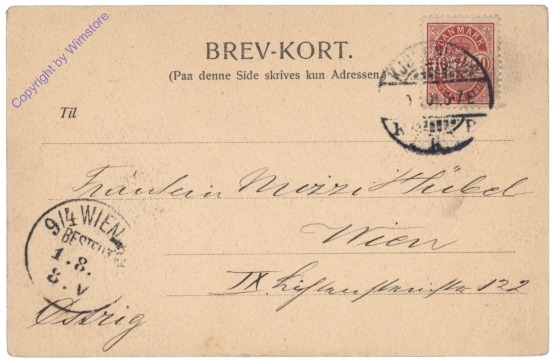 Copyright by Wimstore
BREV-KORT.
(Paa denne Side skrives kun Adressen
DANMARK
10
Til
Fräulein Mizzi Hübel
Wien
IX. Liechtensteinstr 122
9/4 WIEN
BESTELLT
1. 8.
8. V
Østrig